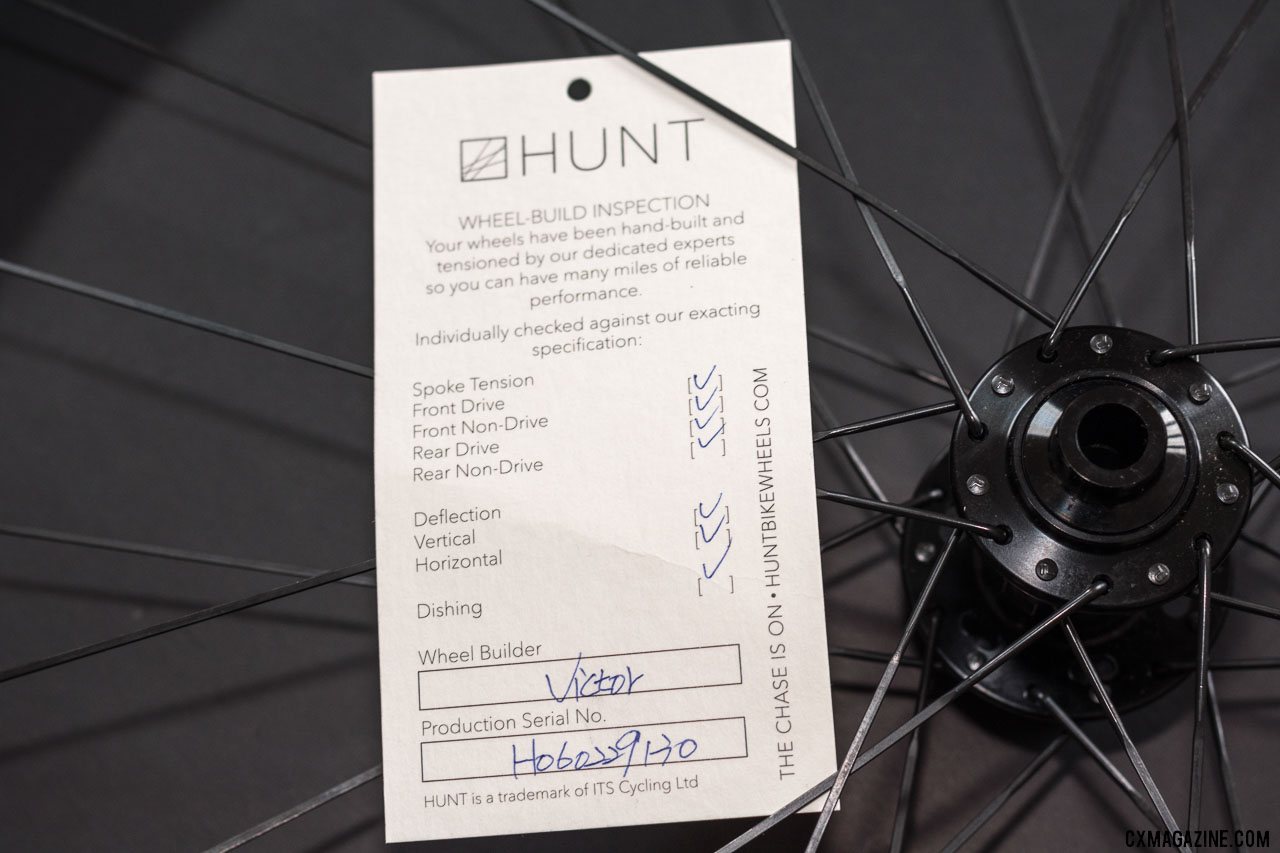 HUNT
WHEEL-BUILD INSPECTION
Your wheels have been hand-built and
tensioned by our dedicated experts
so you can have many miles of reliable
performance.
Individually checked against our exacting
specification:
Spoke Tension
Front Drive
Front Non-Drive
Rear Drive
Rear Non-Drive
Deflection
Vertical
Horizontal
Dishing
Wheel Builder
Victor
Production Serial No.
H060229130
HUNT is a trademark of ITS Cycling Ltd
THE CHASE IS ON • HUNTBIKEWHEELS.COM
CXMAGAZINE.COM